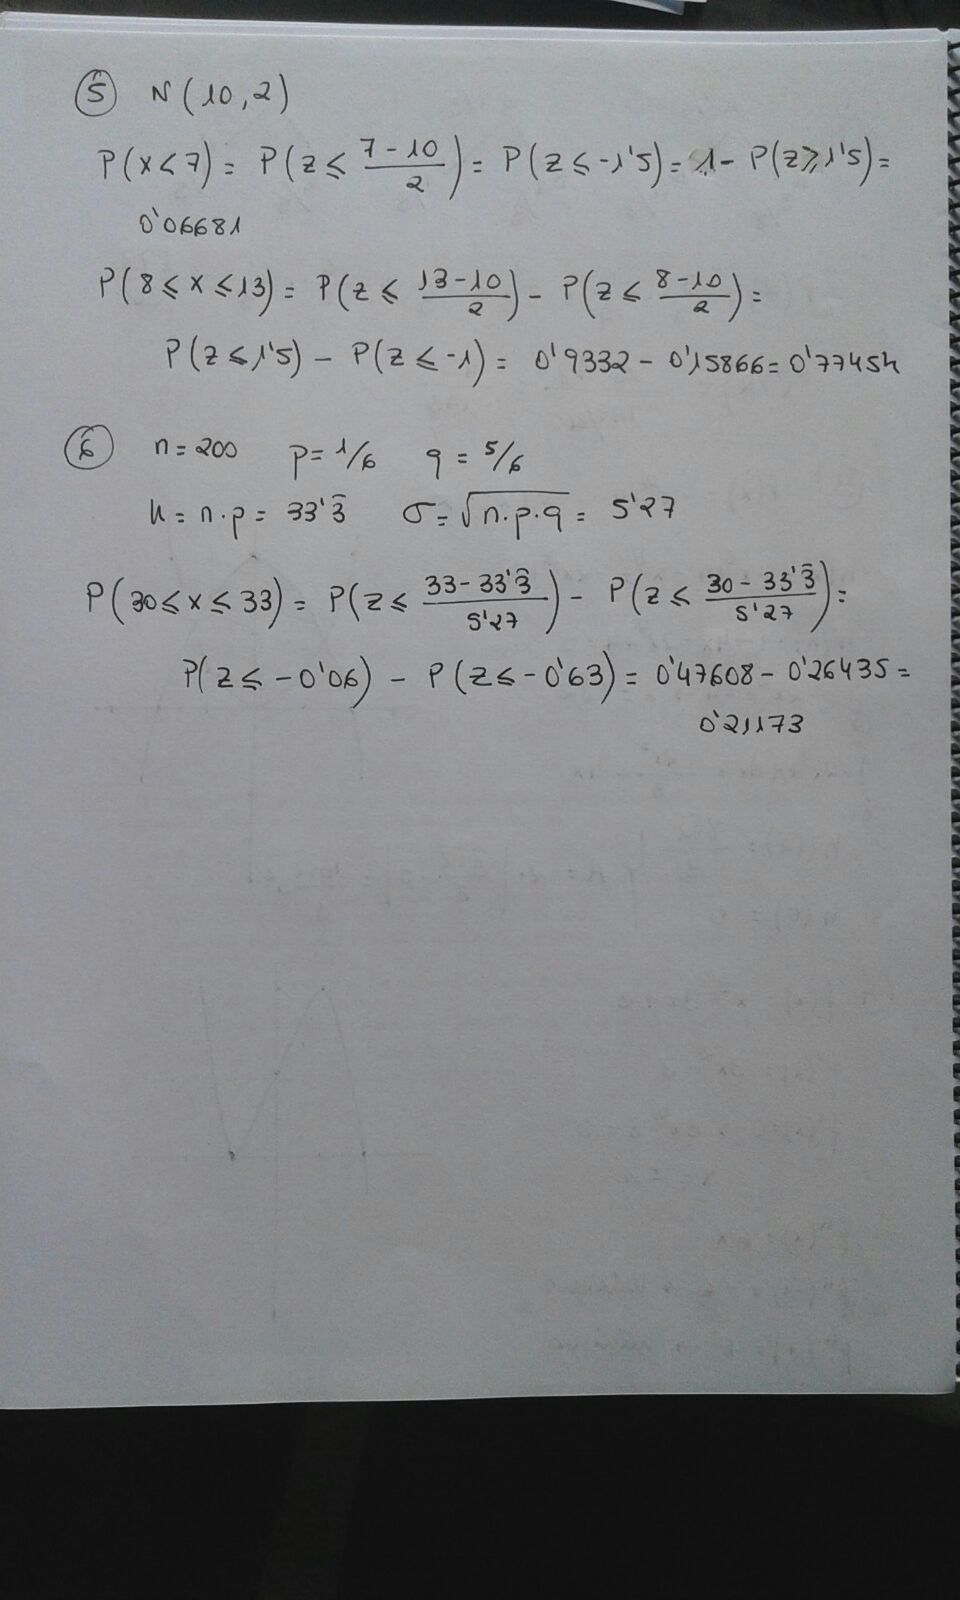 ⑤ N(10,2)
P(x<7) = P(z ≤ (7-10)/2) = P(z ≤ -1'5) = 1 - P(z ≥ 1'5) =
0'06681
P(8 ≤ x ≤ 13) = P(z ≤ (13-10)/2) - P(z ≤ (8-10)/2) =
P(z ≤ 1'5) - P(z ≤ -1) = 0'9332 - 0'15866 = 0'77454
⑥ n = 200 p = 1/6 q = 5/6
μ = n·p = 33'3̂ σ = √(n·p·q) = 5'27
P(30 ≤ x ≤ 33) = P(z ≤ (33-33'3̂)/5'27) - P(z ≤ (30-33'3̂)/5'27) =
P(z ≤ -0'06) - P(z ≤ -0'63) = 0'47608 - 0'26435 =
0'21173